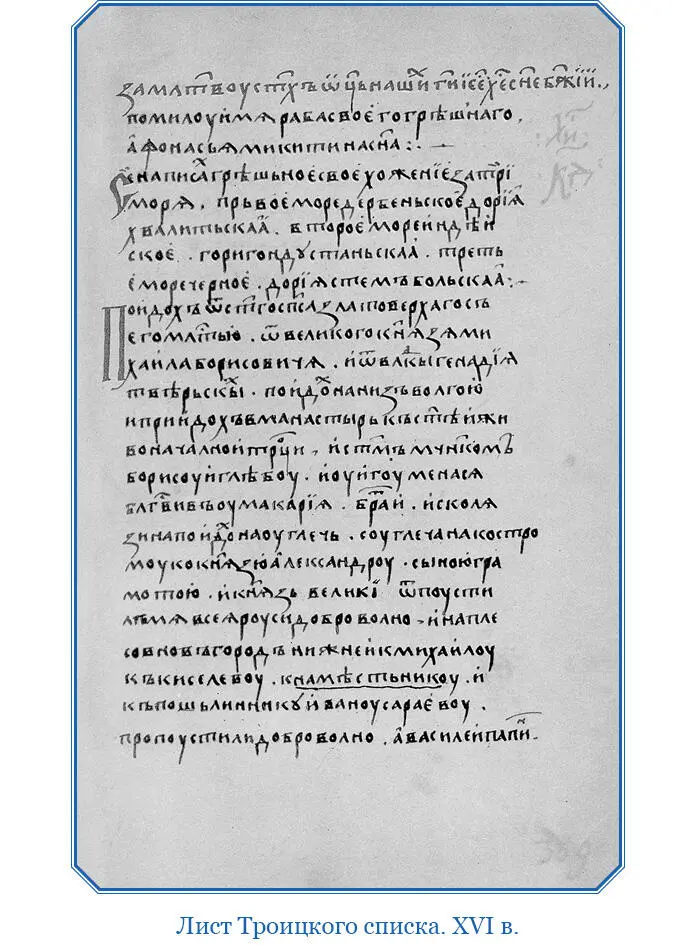 за млт҃воустх҃ъ ѿц҃ь нашиⷯ ги҃ іс҃е хс҃е сн҃е бж҃їй.,
помилоуи мѧ раба своего грѣшнаго,
афонасьѧ микитина сн҃а :·
Се написаⷯ грѣшьное свое хоженїе за три
морѧ, пръвое море дербеньское дорїѧ
хвалитьскаа, второе море индѣй
ское, горигондустаньскаа, треть
е море черное, дорїѧ стемъбольскаа :·
Поидохъ ѿ ст҃го спс҃а златоверхаго съ
его млт҃ью, ѿ великого кнѧзѧ ми
хаила борисовичѧ, и ѿ влⷣкы генадїѧ
твѣрьскыⷯ, поидоⷯ на низъ волгою
и приидохъ в манастырь къ ст҃ѣй жи
воначалной трⷪци, и ст҃мъ мчн҃комъ
борисоу и глѣбоу, и оу игоуменасѧ
блг҃вивъ оу макарїѧ, братїи, и с колѧ
зина поидоⷯ на оуглечь, с оуглеча на костро
моу ко кнѧзю александроу, с ыною гра
мотою, и кнѧзь великїй ѿпусти
лъ мѧ всеѧ роуси доброволно, и на пле
со в новъгородъ нижней к михайлоу
къ киселевоу, к намѣстьникоу, и
къ пошьлинникоу иваноу сараевоу,
пропустили доброволно, а василей папин
Лист Троицкого списка. XVI в.